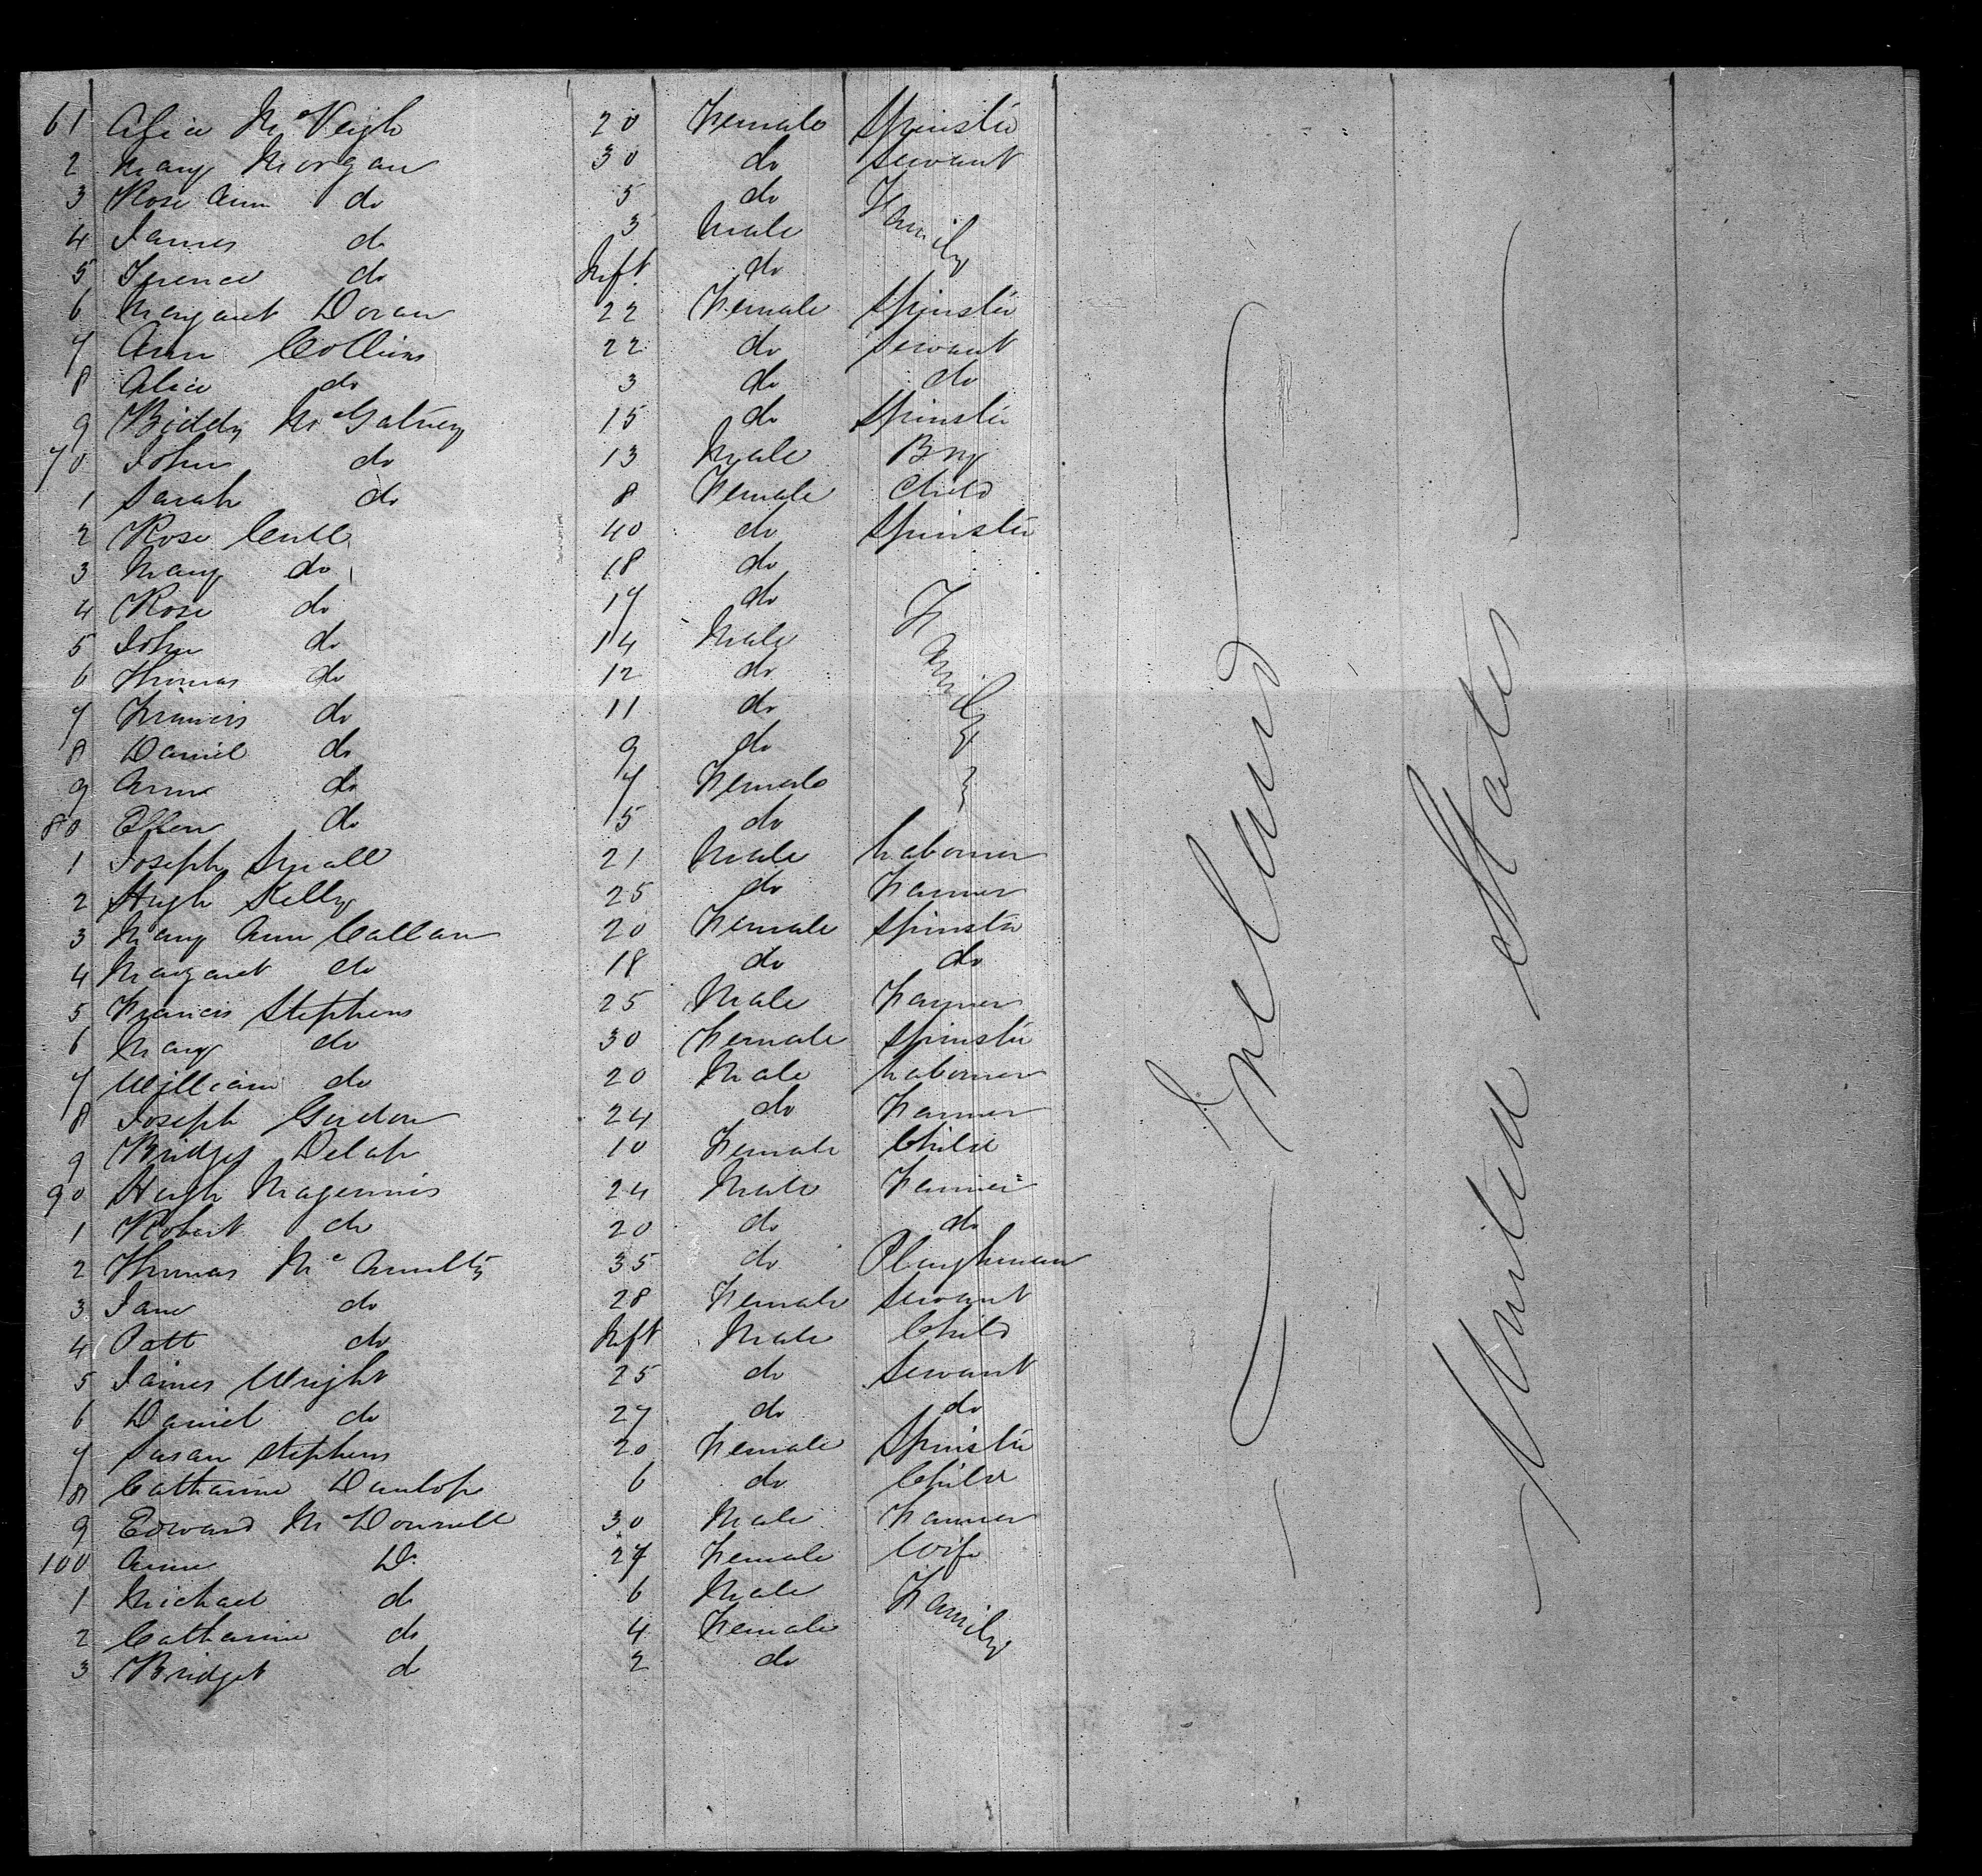 61 Alice McVeigh 20 Female Spinster
2 Mary Morgan 30 do Servant
3 Rose Ann do 5 do Family
4 James do 3 Male
5 Terence do Inft. do
6 Margaret Doran 22 Female Spinster
7 Ann Collins 22 do Servant
8 Alice do 3 do do
9 Biddy 15 do Spinster
70 John do 13 Male Boy
1 Sarah do 8 Female Child
2 Rose 40 do Spinster
3 Mary do 18 do
4 Rose do 17 do Family
5 John do 14 Male
6 Thomas do 12 do
7 Francis do 11 do
8 Daniel do 9 do
9 Ann do 7 Female
80 Ellen do 5 do
1 Joseph Small 21 Male Labourer
2 Hugh Kelly 25 do Farmer
3 Mary Ann Callan 20 Female Spinster
4 Margaret do 18 do do
5 Francis Stephens 25 Male Farmer
6 Mary do 30 Female Spinster
7 William do 20 Male Labourer
8 Joseph Gordon 24 do Farmer
9 Bridget Delap 10 Female Child
90 Hugh Magennis 24 Male Farmer
1 Robert do 20 do do
2 Thomas McAnulty 35 do Ploughman
3 Jane do 28 Female Servant
4 Patt do Inft Male Child
5 James Wright 25 do Servant
6 Daniel do 27 do do
7 Susan Stephens 20 Female Spinster
8 Catharine Dunlop 6 do Child
9 Edward McDonnell 30 Male Farmer
100 Anne Do 27 Female Wife
1 Michael do 6 Male Family
2 Catharine do 4 Female
3 Bridget do 2 do
Ireland
United States